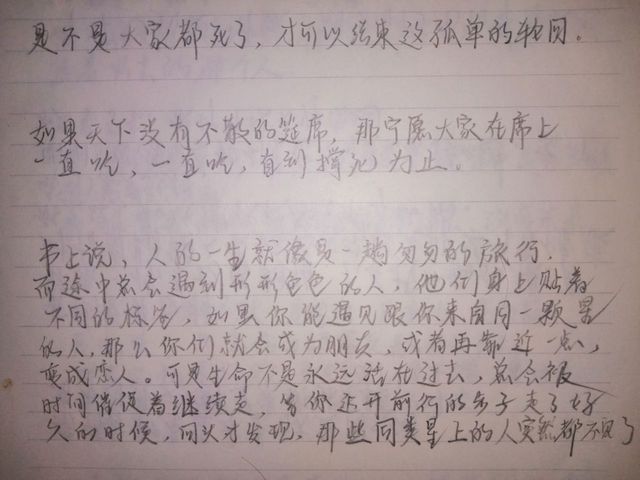 是不是大家都死了，才可以结束这孤单的轮回。
如果天下没有不散的筵席，那宁愿大家在席上
一直吃，一直吃，直到撑死为止。
书上说，人的一生就像是一趟匆匆的旅行，
而途中总会遇到形形色色的人，他们身上贴着
不同的标签，如果你能遇见跟你来自同一颗星
的人，那么你们就会成为朋友，或者再靠近一点，
变成恋人。可是生命不是永远活在过去，总会被
时间催促着继续走，等你迈开前行的步子走了好
久的时候，回头才发现，那些同类星上的人突然都不见了